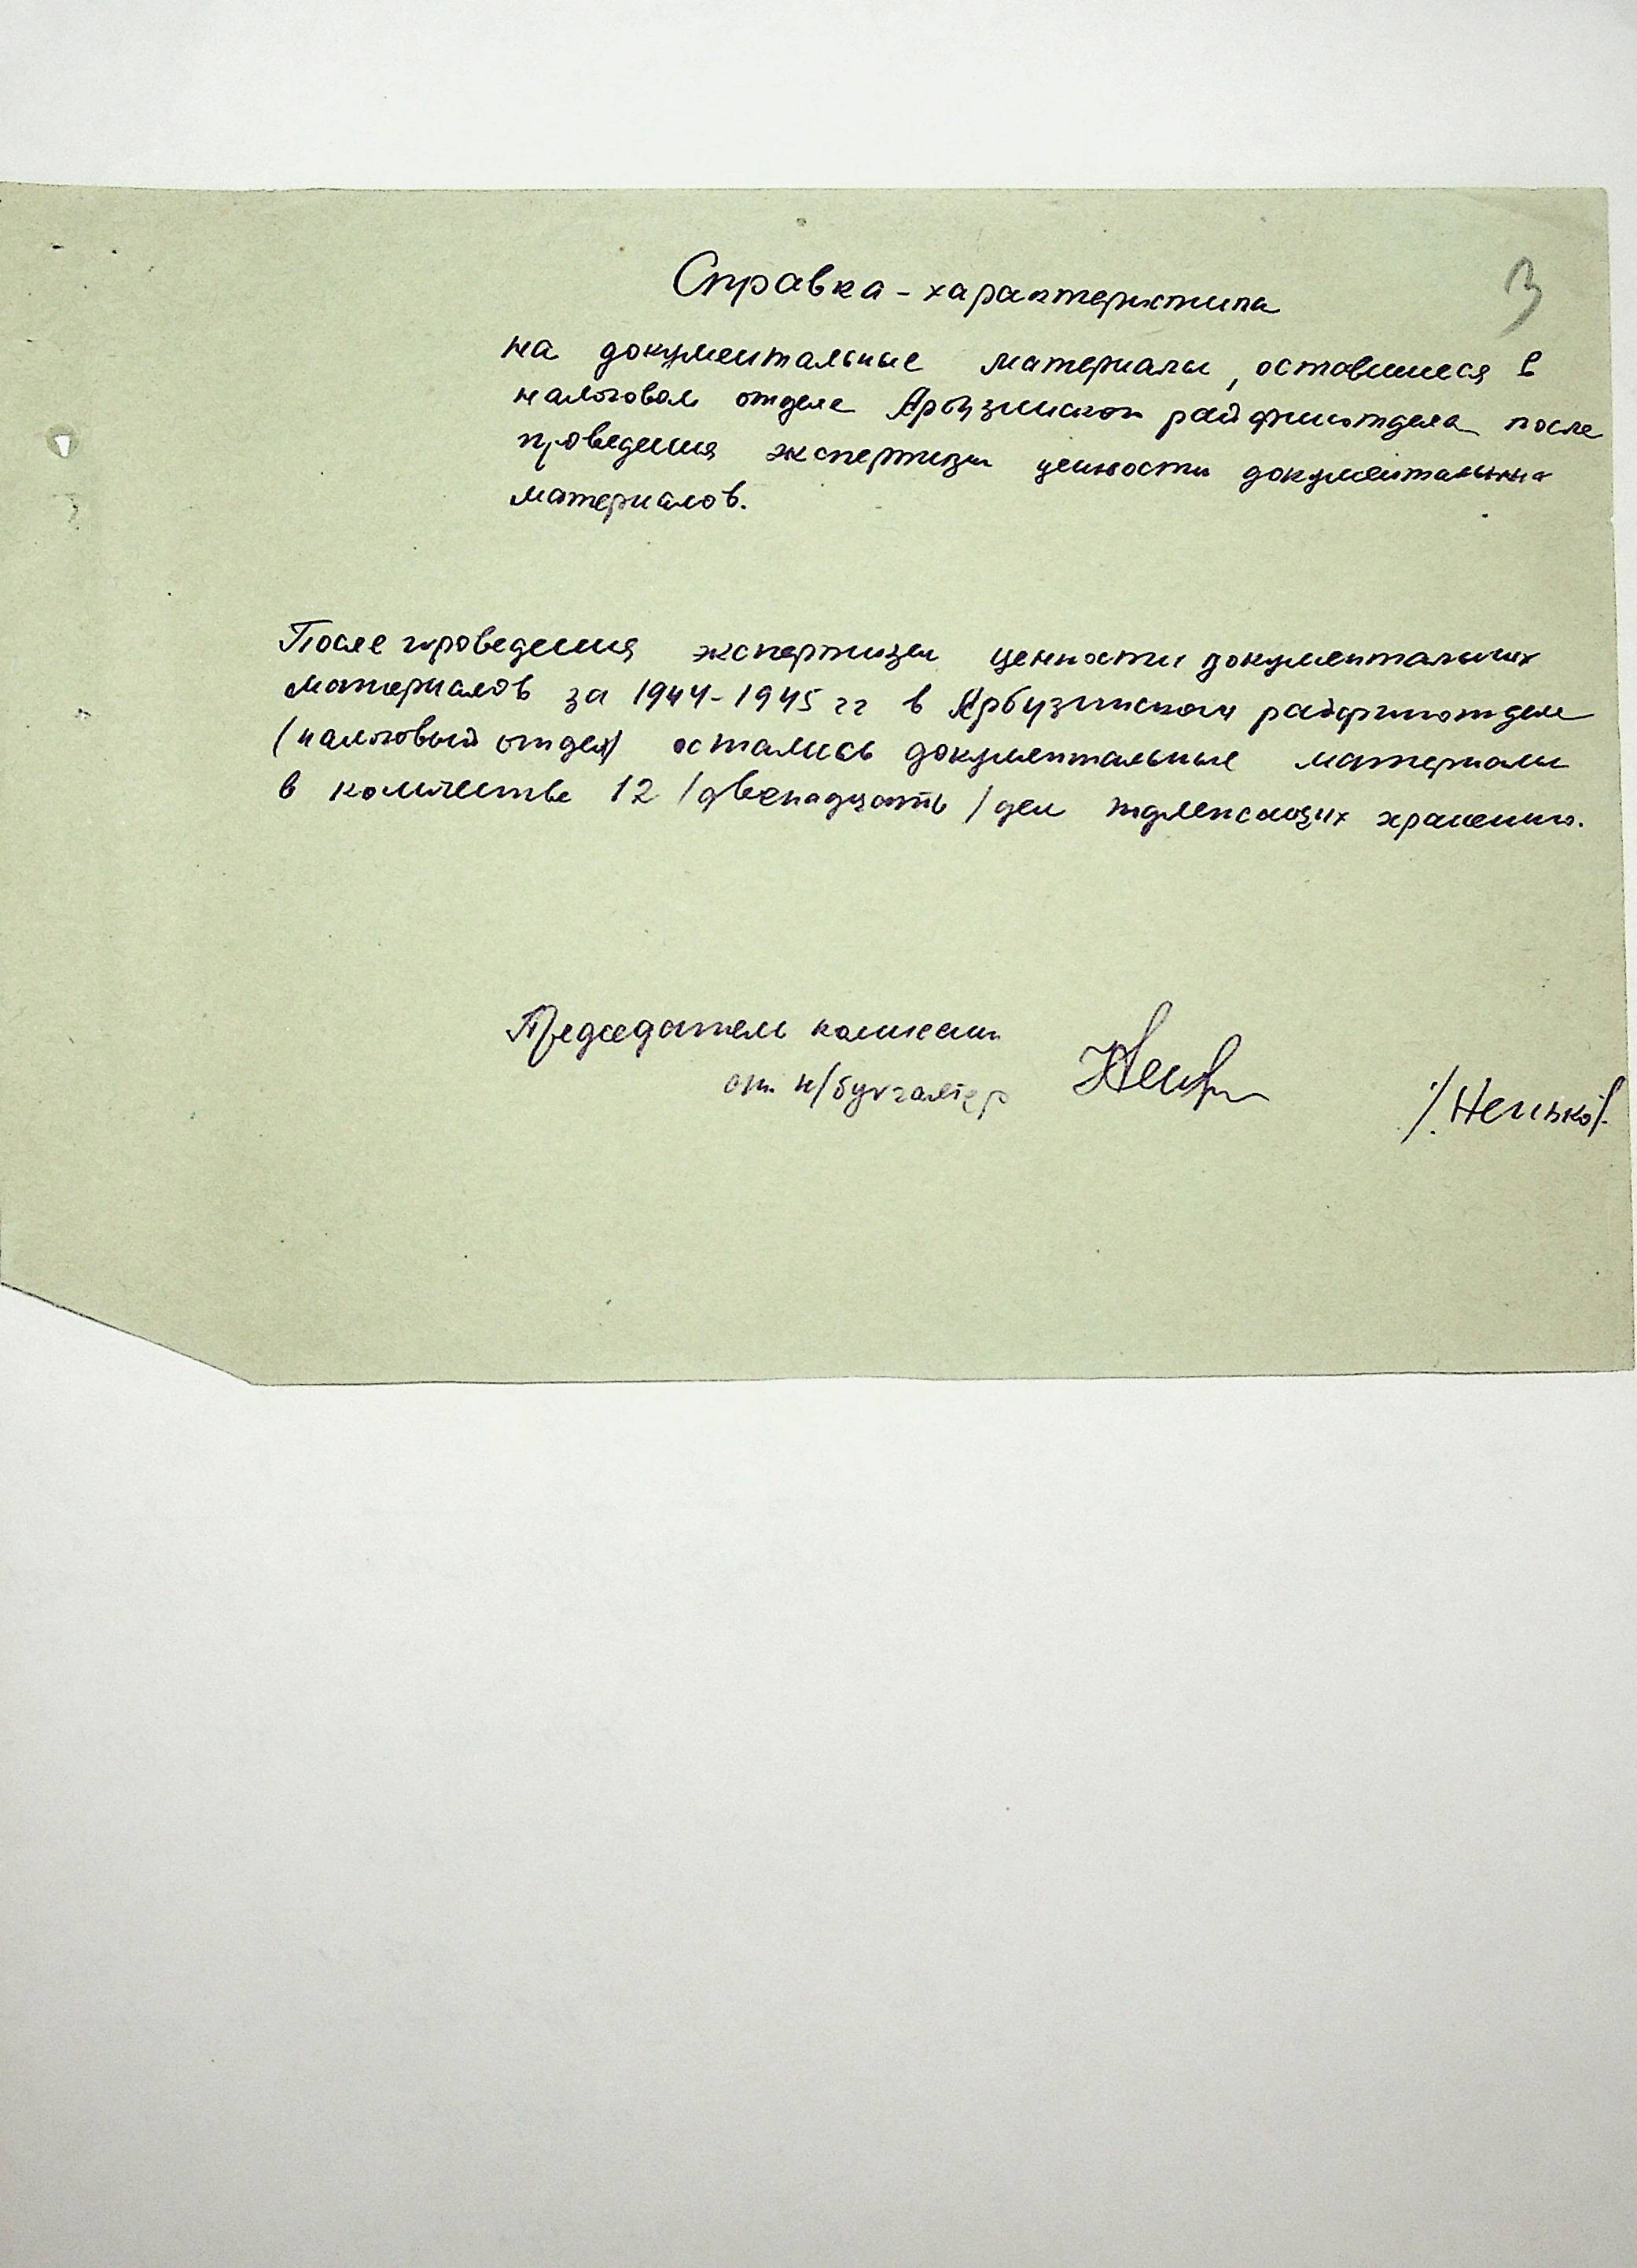 3
Справка - характеристика
на документальные материалы, оставшиеся в
налоговом отделе Арбузинского райфинотдела после
проведения экспертизы ценности документальных
материалов.
После проведения экспертизы ценности документальных
материалов за 1944-1945 гг в Арбузинском райфинотделе
(налоговый отдел) остались документальные материалы
в количестве 12 /двенадцать/ дел подлежащих хранению.
Председатель комиссии
ст. н/бухгалтер
/Ненько/.